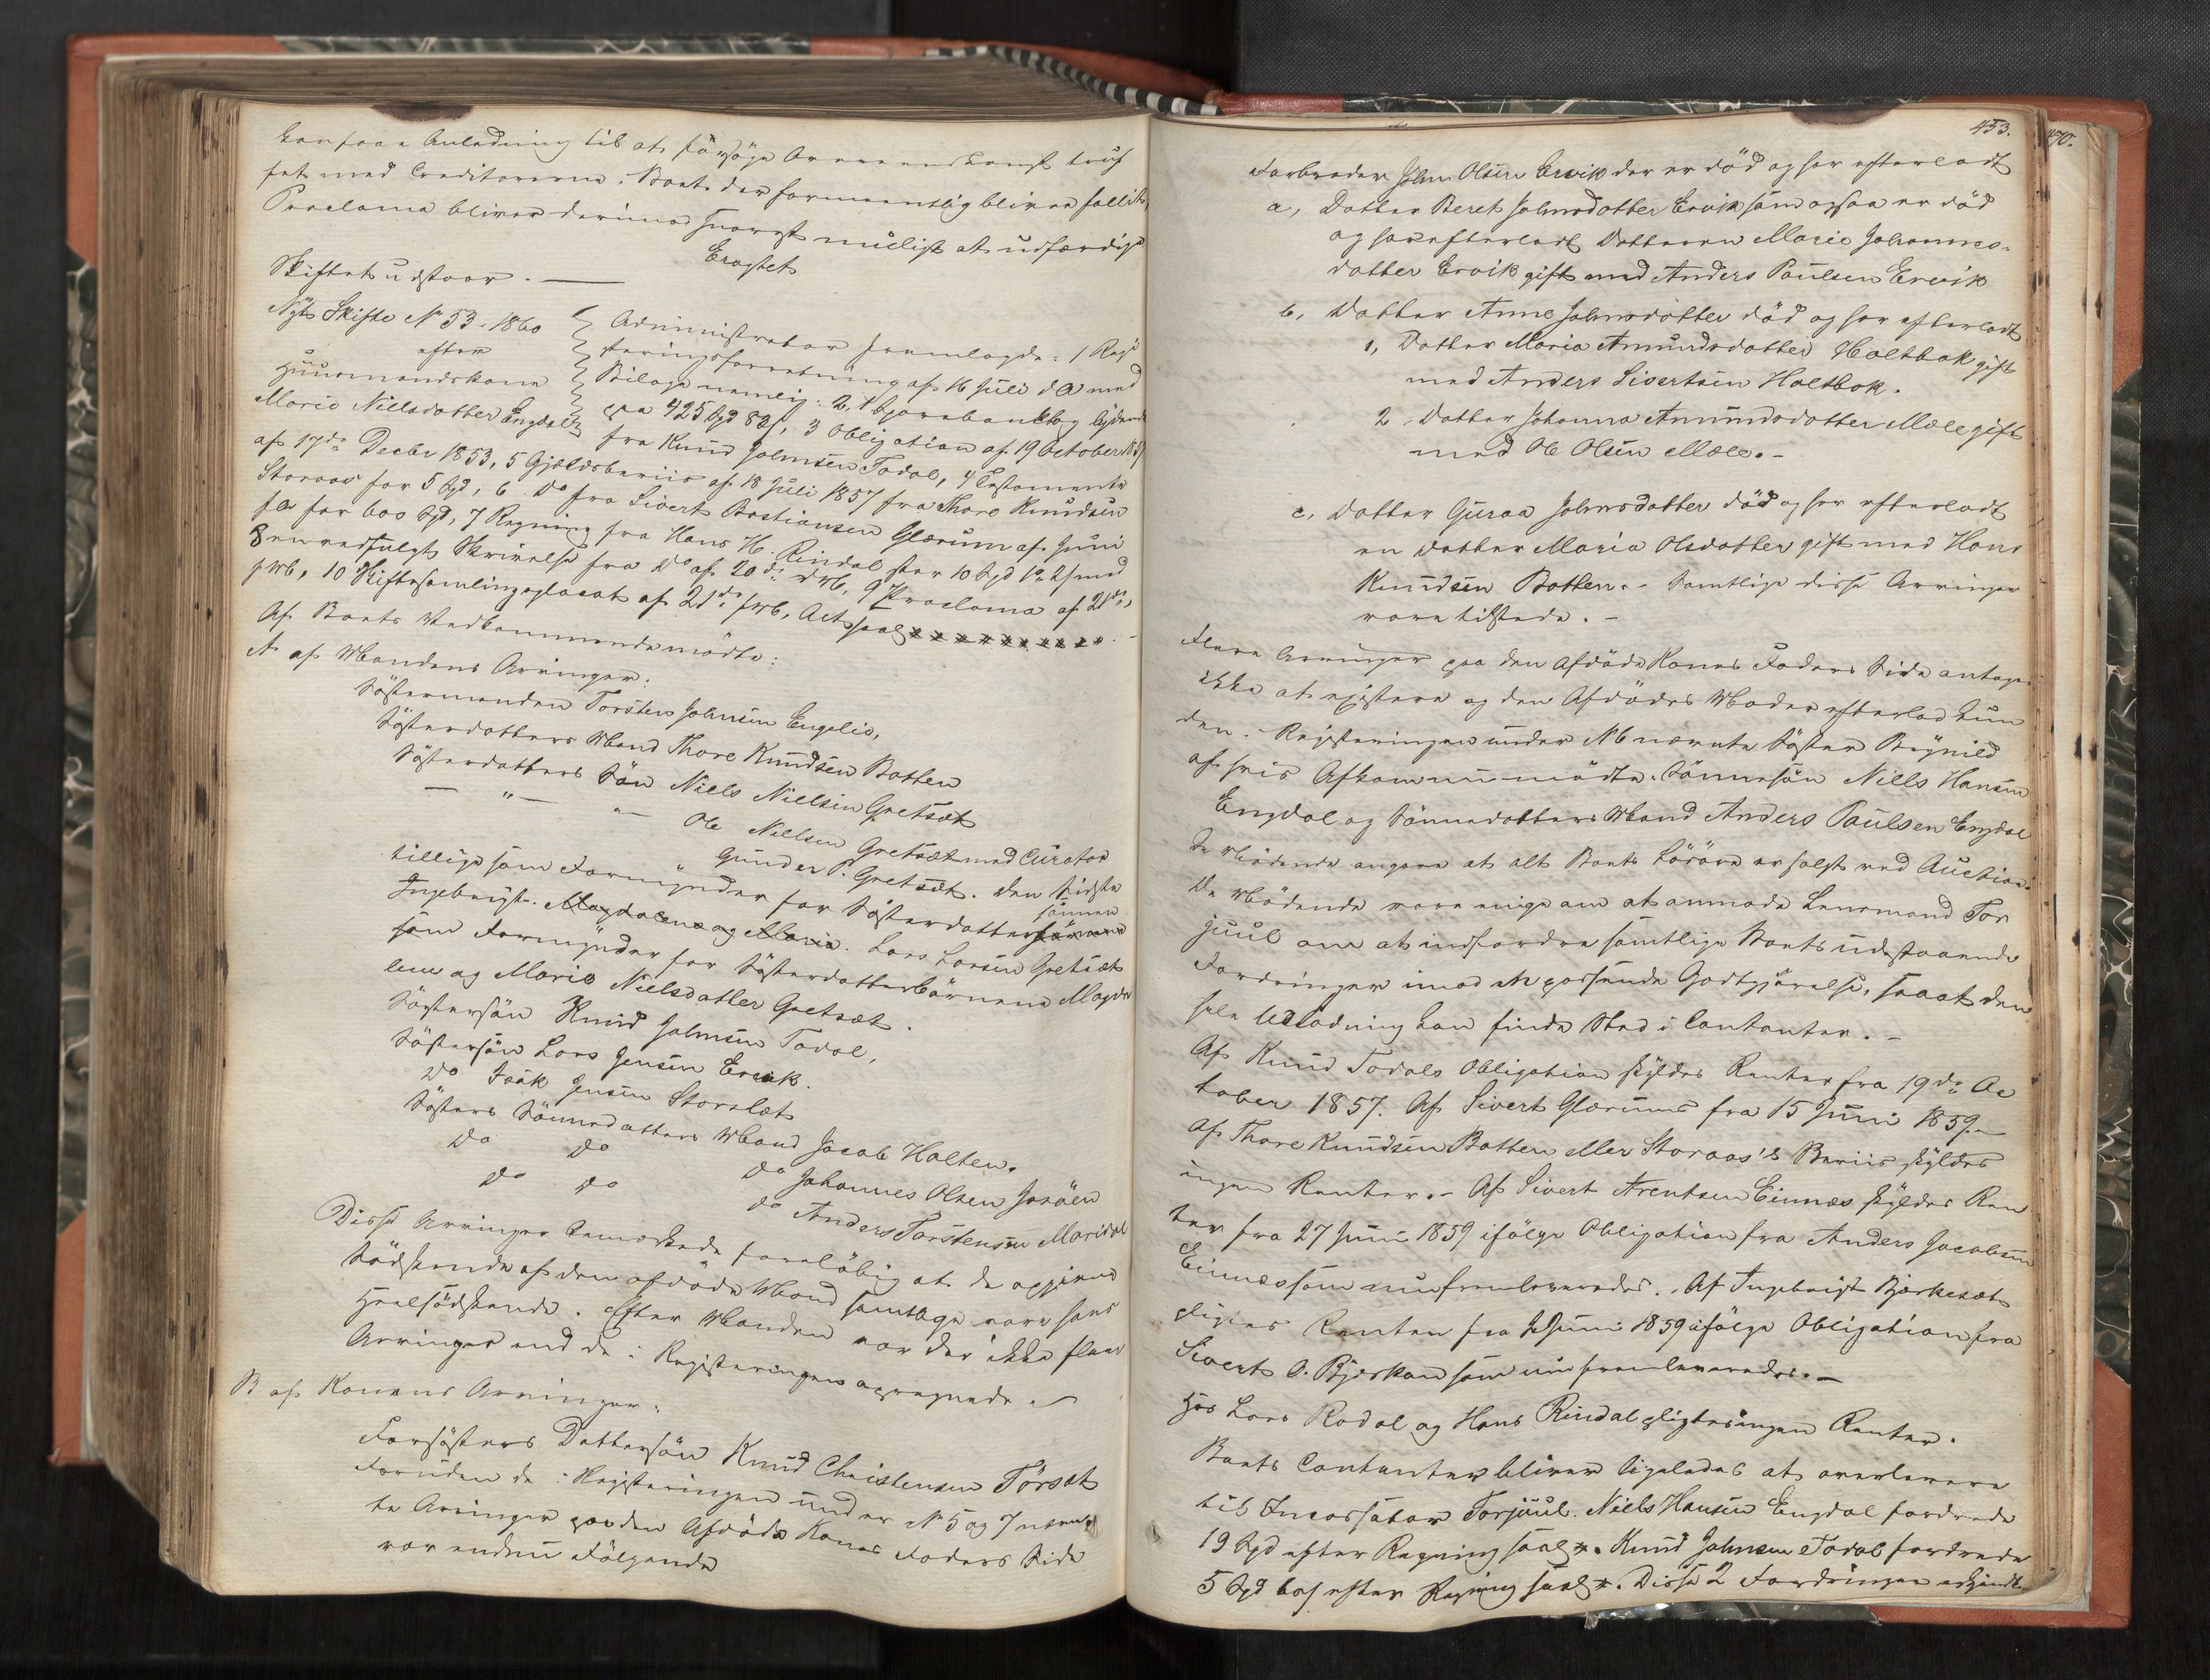 kansaa Anledning til at forsøge Overeenskomst truf
fet med Creditorerne. Boet der formeentlig bliver fallit,
Proclama bliver derimod snarest muligt at udfærdige
Skiftet udstaar. — Eragtet
Nyt Skifte No 53. 1860
efter
Huusmandskone
Marie Nielsdatter Engdal
Administrator fremlagde: 1 Regi
steringsforretning af 16 Juli d.A. med
Bilage nemlig: 2, 1 Sparebankbog lydende
paa 425 Spd 82 s, 3 Obligation af 19 October 1857
fra Knud Johnsen Todal, 4 Testamente
af 17de Decbr 1853, 5 Gjældsbeviis af 18 Juli 1857 fra Thore Knudsen
Storaas for 5 Spd, 6 Do fra Sivert Bastiansen Glærum af Juni
for 600 Spd, 7 Regning fra Hans H. Rindal stor 10 Spd med
8 vedfulgt Skrivelse fra Do af 20de 9 Proclama af 21de
10 Skiftesamlingsplacat af 21de Act saal.
Af Boets Vedkommende mødte:
A af Mandens Arvinger:
Søstermanden Torsten Johnsen Engelie,
Søsterdatters Mand Thore Knudsen Botten
Søsterdatters Søn Niels Nielsen Gretsæt
— " — " — Ole Nielsen Gretsæt med Curator
Gunder P. Gretsæt. Den sidste
tillige som Formynder for Søsterdattersønnen sønnen
Ingebrigt. Magdalena og Marie. Lars Larsen Gretsæt
som Formynder for Søsterdatterbørnene Magda
lena og Marie Nielsdatter Gretsæt.
Søstersøn Knud Johnsen Todal,
Søstersøn Lars Jensen Ervik.
Do Isak Jensen Storslæt
Søsters Sønnedatters Mand Jacob Halten.
Do Do Do Johannes Olsen Josøen
Do Do Do Anders Torstensen Moridal
Disse Arvinger bemærkede foreløbig at de opgivne
Sødskende af den afdøde Mand samtlige vare hans
Heelsødskende. Efter Manden var der ikke flere
Arvinger end de i Registeringen opregnede.
B af Konens Arvinger:
Farsøsters Dattersøn Knud Christensen Torsæt
Foruden de i Registeringen under No 5 og 7 nævn
te Arvinger paa den Afdøde Kones Faders Side
var endnu Følgende
453.
470.
Farbroder John Olsen Ervik der er død og har efterladt
a, Datter Beret Johnsdatter Ervik som ogsaa er død
og har efterladt Datteren Marie Johannes-
datter Ervik gift med Anders Paulsen Ervik
b, Datter Anne Johnsdatter død og har efterladt
1, Datter Maria Amundsdatter Holtbak gift
med Anders Sivertsen Holtbak.
2. Datter Johanna Amundsdatter Mæle gift
med Ole Olsen Mæle. -
c, Datter Guroa Johnsdatter død og har efterladt
en Datter Maria Olsdatter gift med Hans
Knudsen Botten. - Samtlige disse Arvinger
vare tilstede. -
Flere Arvinger paa den afdøde Kones Faders Side antages
ikke at existere og den Afdødes Moder efterlod kun
den i Registeringen under No 6 nævnte Søster Brynild
af hvis Afkom nu mødte: Sønnesøn Niels Hansen
Engdal og Sønnedatters Mand Anders Paulsen Engdal
De Mødende angave at alt Boets Løsøre er solgt ved Auction.
De Mødende vare enige om at anmode Lensmand Tor
juul om at indfordre samtlige Boets udestaaende
Fordringer imod en passende Godtgjørelse, saaat den
hele Udlodning kan finde Sted i Contanter. -
Af Knud Todals Obligation skyldes Renter fra 19de Oc
tober 1857. Af Sivert Glærums fra 15 Juni 1859. -
Af Thore Knudsen Botten eller Storaas's Beviis skyldes
ingen Renter. - Af Sivert Arentsen Einnæs skyldes Ren
ter fra 27 Juni 1859 ifølge Obligation fra Anders Jacobsen
Einnæs som nu fremleveredes. Af Ingebrigt Bjørkesæt
pligtes Renten fra Juni 1859 ifølge Obligation fra
Sivert O. Bjørkan som nu fremleveredes. -
Hos Lars Rodal og Hans Rindal pligtes ingen Renter.
Boets Contanter bliver ligeledes at overlevere
til Incassator Torjuul. Niels Hansen Engdal fordrede
19 Spd efter Regning saal. Knud Johnsen Todal fordrede
5 Spd efter Regning saal. Disse 2 Fordringer erkjendt